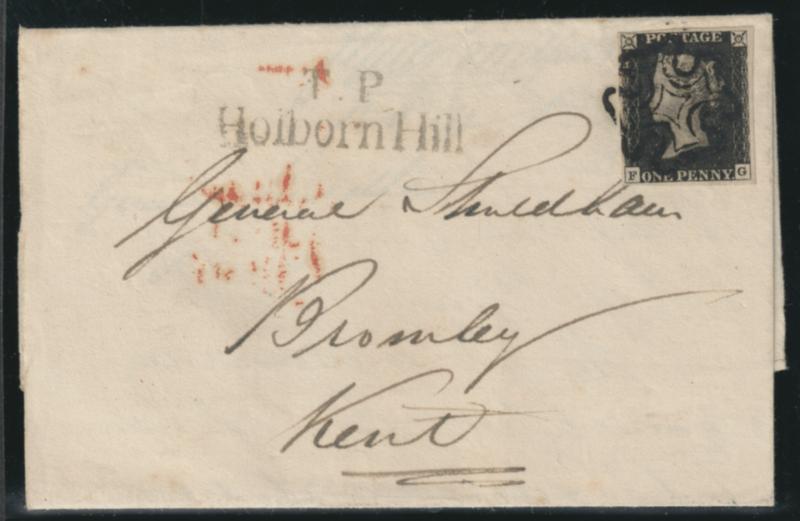 POSTAGE
T. P
Holborn Hill
F ONE PENNY G
General Shuldham
Bromley
Kent